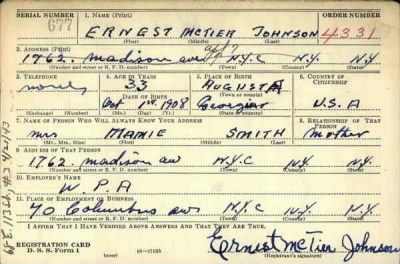 SERIAL NUMBER 1. NAME (Print) ORDER NUMBER
677 ERNEST McTIER JOHNSON 4331
(First) (Middle) (Last)
2. ADDRESS (Print) apt 7
1762. madison av N.Y.C N.Y. N.Y
(Number and street or R. F. D. number) (Town) (County) (State)
3. TELEPHONE 4. AGE IN YEARS 5. PLACE OF BIRTH 6. COUNTRY OF CITIZENSHIP
none 33 AUGUSTA
DATE OF BIRTH (Town or county)
Oct 1st 1908 Georgia U.S.A
(Mo.) (Day) (Yr.) (State or country)
7. NAME OF PERSON WHO WILL ALWAYS KNOW YOUR ADDRESS 8. RELATIONSHIP OF THAT PERSON
mrs MAMIE SMITH mother
(Mr., Mrs., Miss) (First) (Middle) (Last)
9. ADDRESS OF THAT PERSON
1762. madison av N.Y.C N.Y. N.Y
(Number and street or R. F. D. number) (Town) (County) (State)
10. EMPLOYER'S NAME
W.P.A
11. PLACE OF EMPLOYMENT OR BUSINESS
70 Columbus av N.Y.C N.Y. N.Y
(Number and street or R. F. D. number) (Town) (County) (State)
I AFFIRM THAT I HAVE VERIFIED ABOVE ANSWERS AND THAT THEY ARE TRUE.
REGISTRATION CARD
D. S. S. FORM 1 (over) 16-17105 Ernest McTier Johnson
(Registrant's signature)